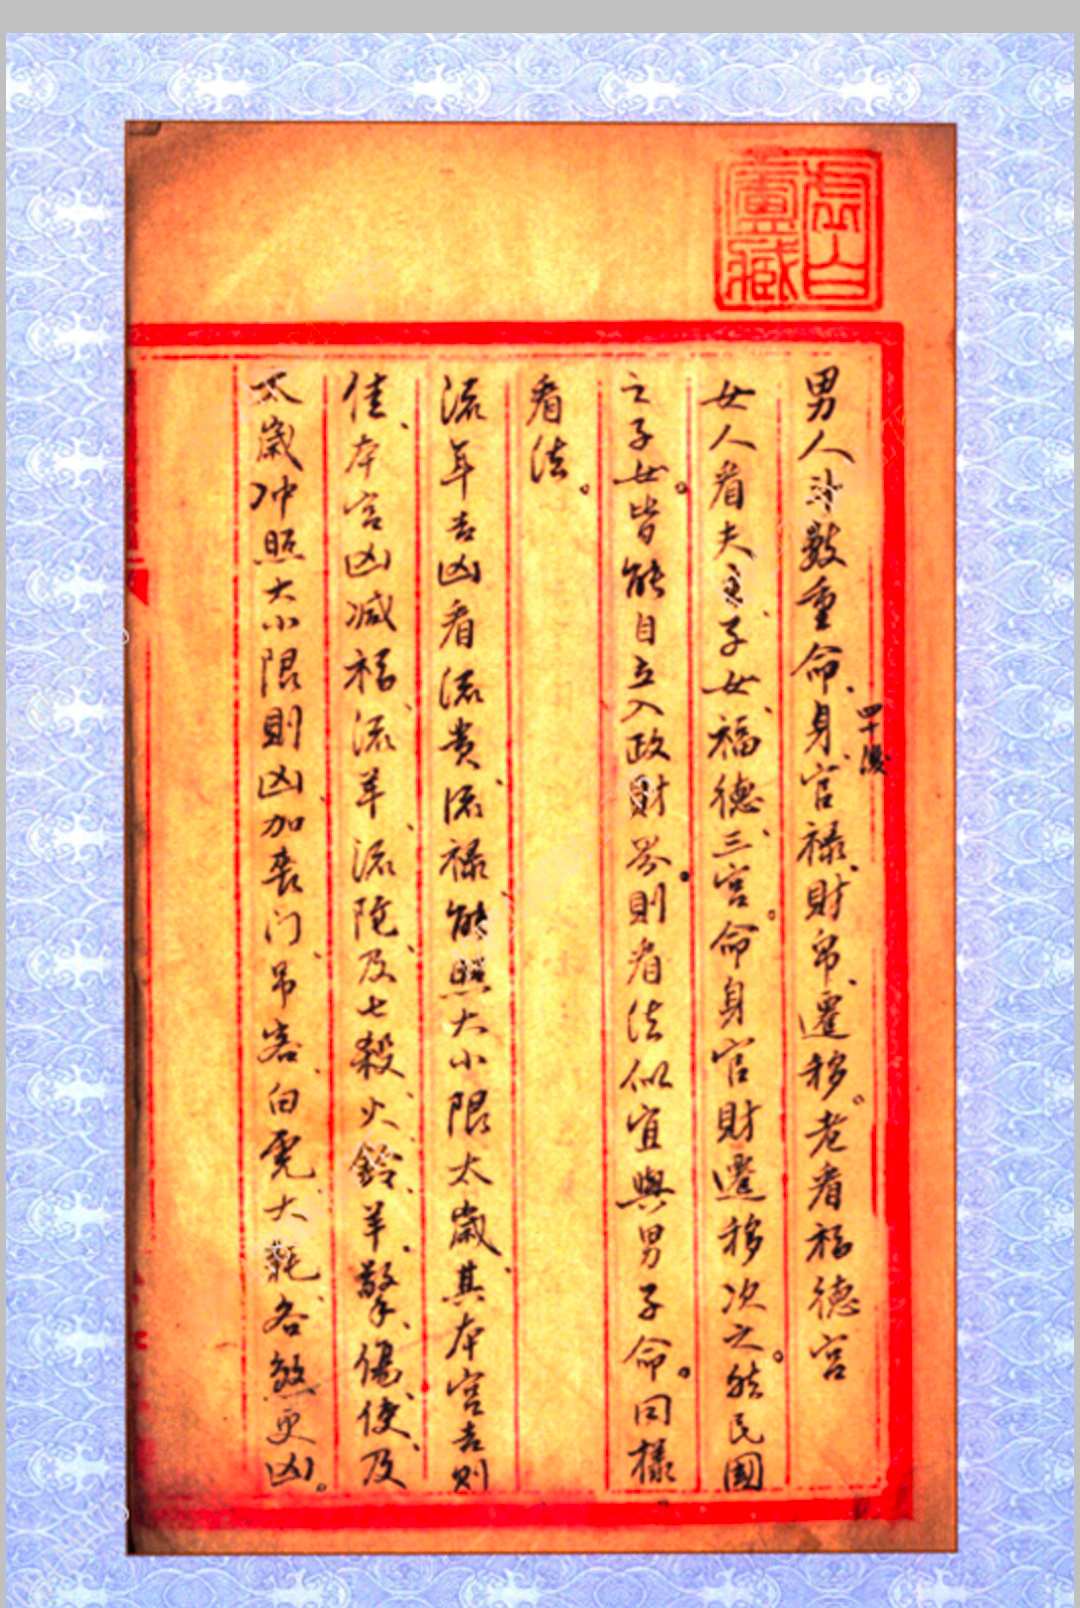 虛白
盧藏
男人斗數重命、身、官祿、財帛、遷移。老看福德宮
四十後
女人看夫主、子女、福德、三宮。命身官財遷移次之。然民國
之子女。皆能自立入政財界。則看法似宜與男子命。同樣
看法。
流年吉凶看流貴、流祿、能照大小限太歲、其本宮吉則
佳、本宮凶減福、流羊、流陀、及七殺、火、鈴、羊、擎、傷、使、及
太歲冲照大小限則凶加喪门、吊客、白虎、大耗、各煞更凶。